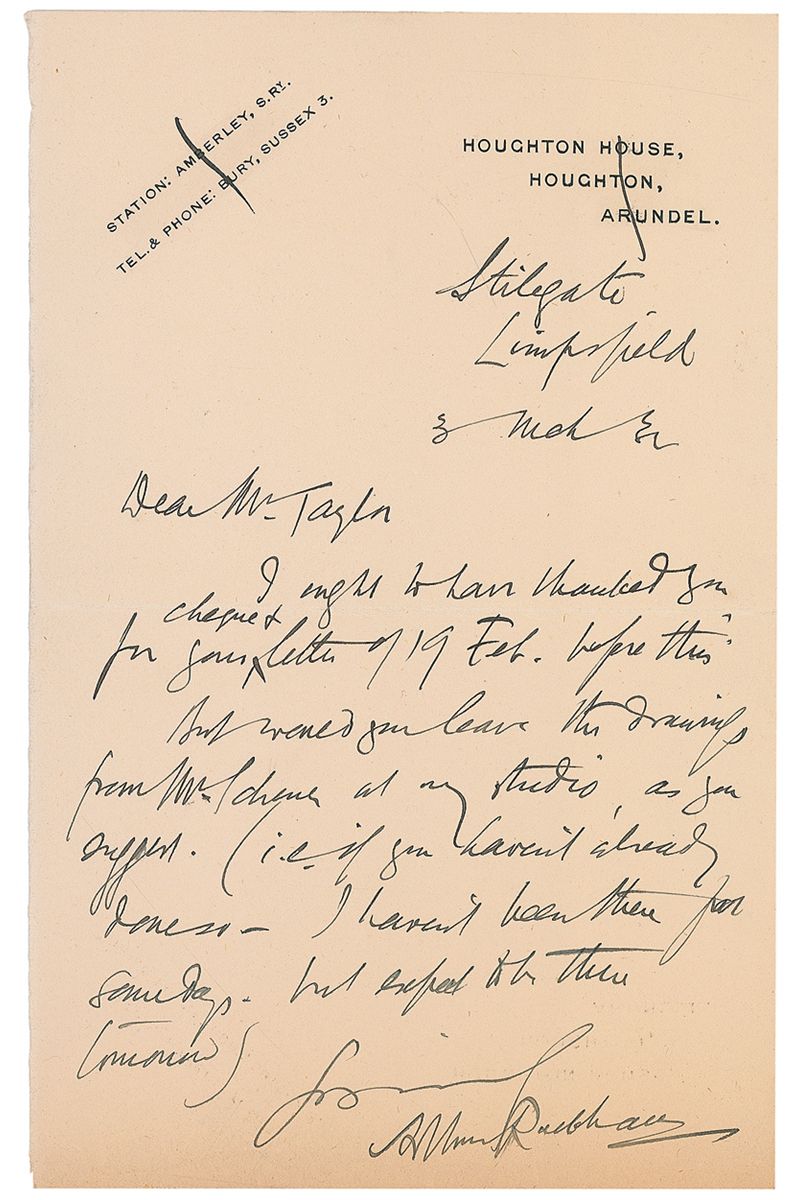 STATION: AMBERLEY, S.RY.
TEL. & PHONE: BURY, SUSSEX 3.
HOUGHTON HOUSE,
HOUGHTON,
ARUNDEL.
Stilegate
Limpsfield
3 Mch
Dear Mr Taylor
I ought to have thanked you
cheque &
for your letter of 19 Feb. before this.
But would you leave the drawings
from Mr at my studio, as you
suggest. (i.e. if you haven't already
done so – I haven't been there for
some days. but expect to be there
tomorrow)
Arthur Rackham